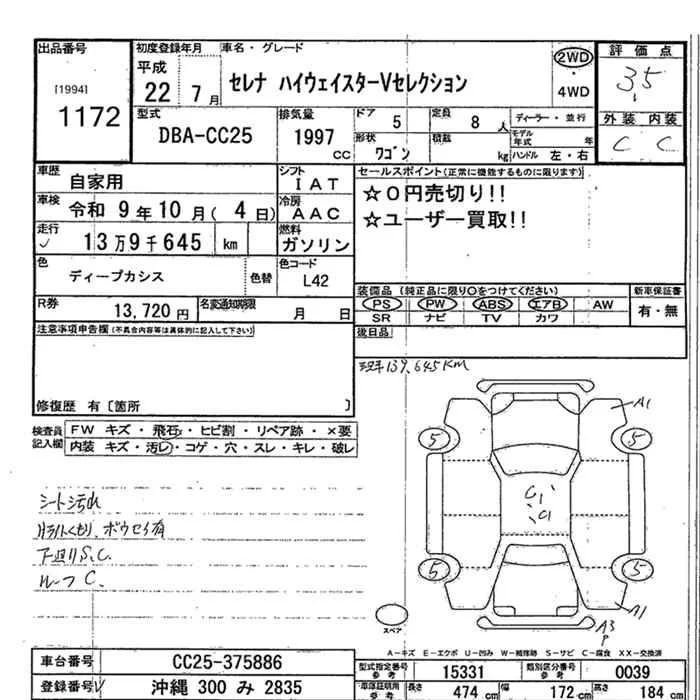 出品番号
[1994]
1172
初度登録年月
平成
22 7月
車名・グレード
セレナ ハイウェイスターVセレクション
2WD
・
4WD
評価点
3.5
外装 内装
C C
型式
DBA-CC25
排気量
1997
CC
ドア
5
定員
8 人
形状
ワゴン
積載
kg
ディーラー・並行
モデル年式
年
ハンドル 左・右
車歴
自家用
シフト
I AT
車検
令和 9年10月( 4日)
冷房
AAC
走行
✓
13万9千645 km
燃料
ガソリン
色
ディープカシス
色替
色コード
L42
R券
13,720円
名変通知期限
月 日
セールスポイント(正常に機能するものに限ります)
☆0円売切り!!
☆ユーザー買取!!
装備品 (純正品に限り○をつけてください)
PS PW ABS エアB AW
SR ナビ TV カワ
新車保証書
有・無
後日品
注意事項申告欄(不具合内容等は具体的に記入して下さい)
修復歴 有〔箇所 〕
検査員記入欄
FW キズ・飛石・ヒビ割・リペア跡・×要
内装 キズ・汚レ・コゲ・穴・スレ・キレ・破レ
139,645KM
A1
5 5
C1
C1
5 5
A1
A3
P
スペア
シート汚れ
ボウセイ有
下廻りS.C.
ルーフC.
A-キズ E-エクボ U-凹み W-補修跡 S-サビ C-腐食 XX-交換済
車台番号
CC25-375886
登録番号
沖縄 300 み 2835
型式指定番号
参考
15331
類別区分番号
参考
0039
車庫証明用
参考
長さ
474 cm
幅
172 cm
高さ
184 cm